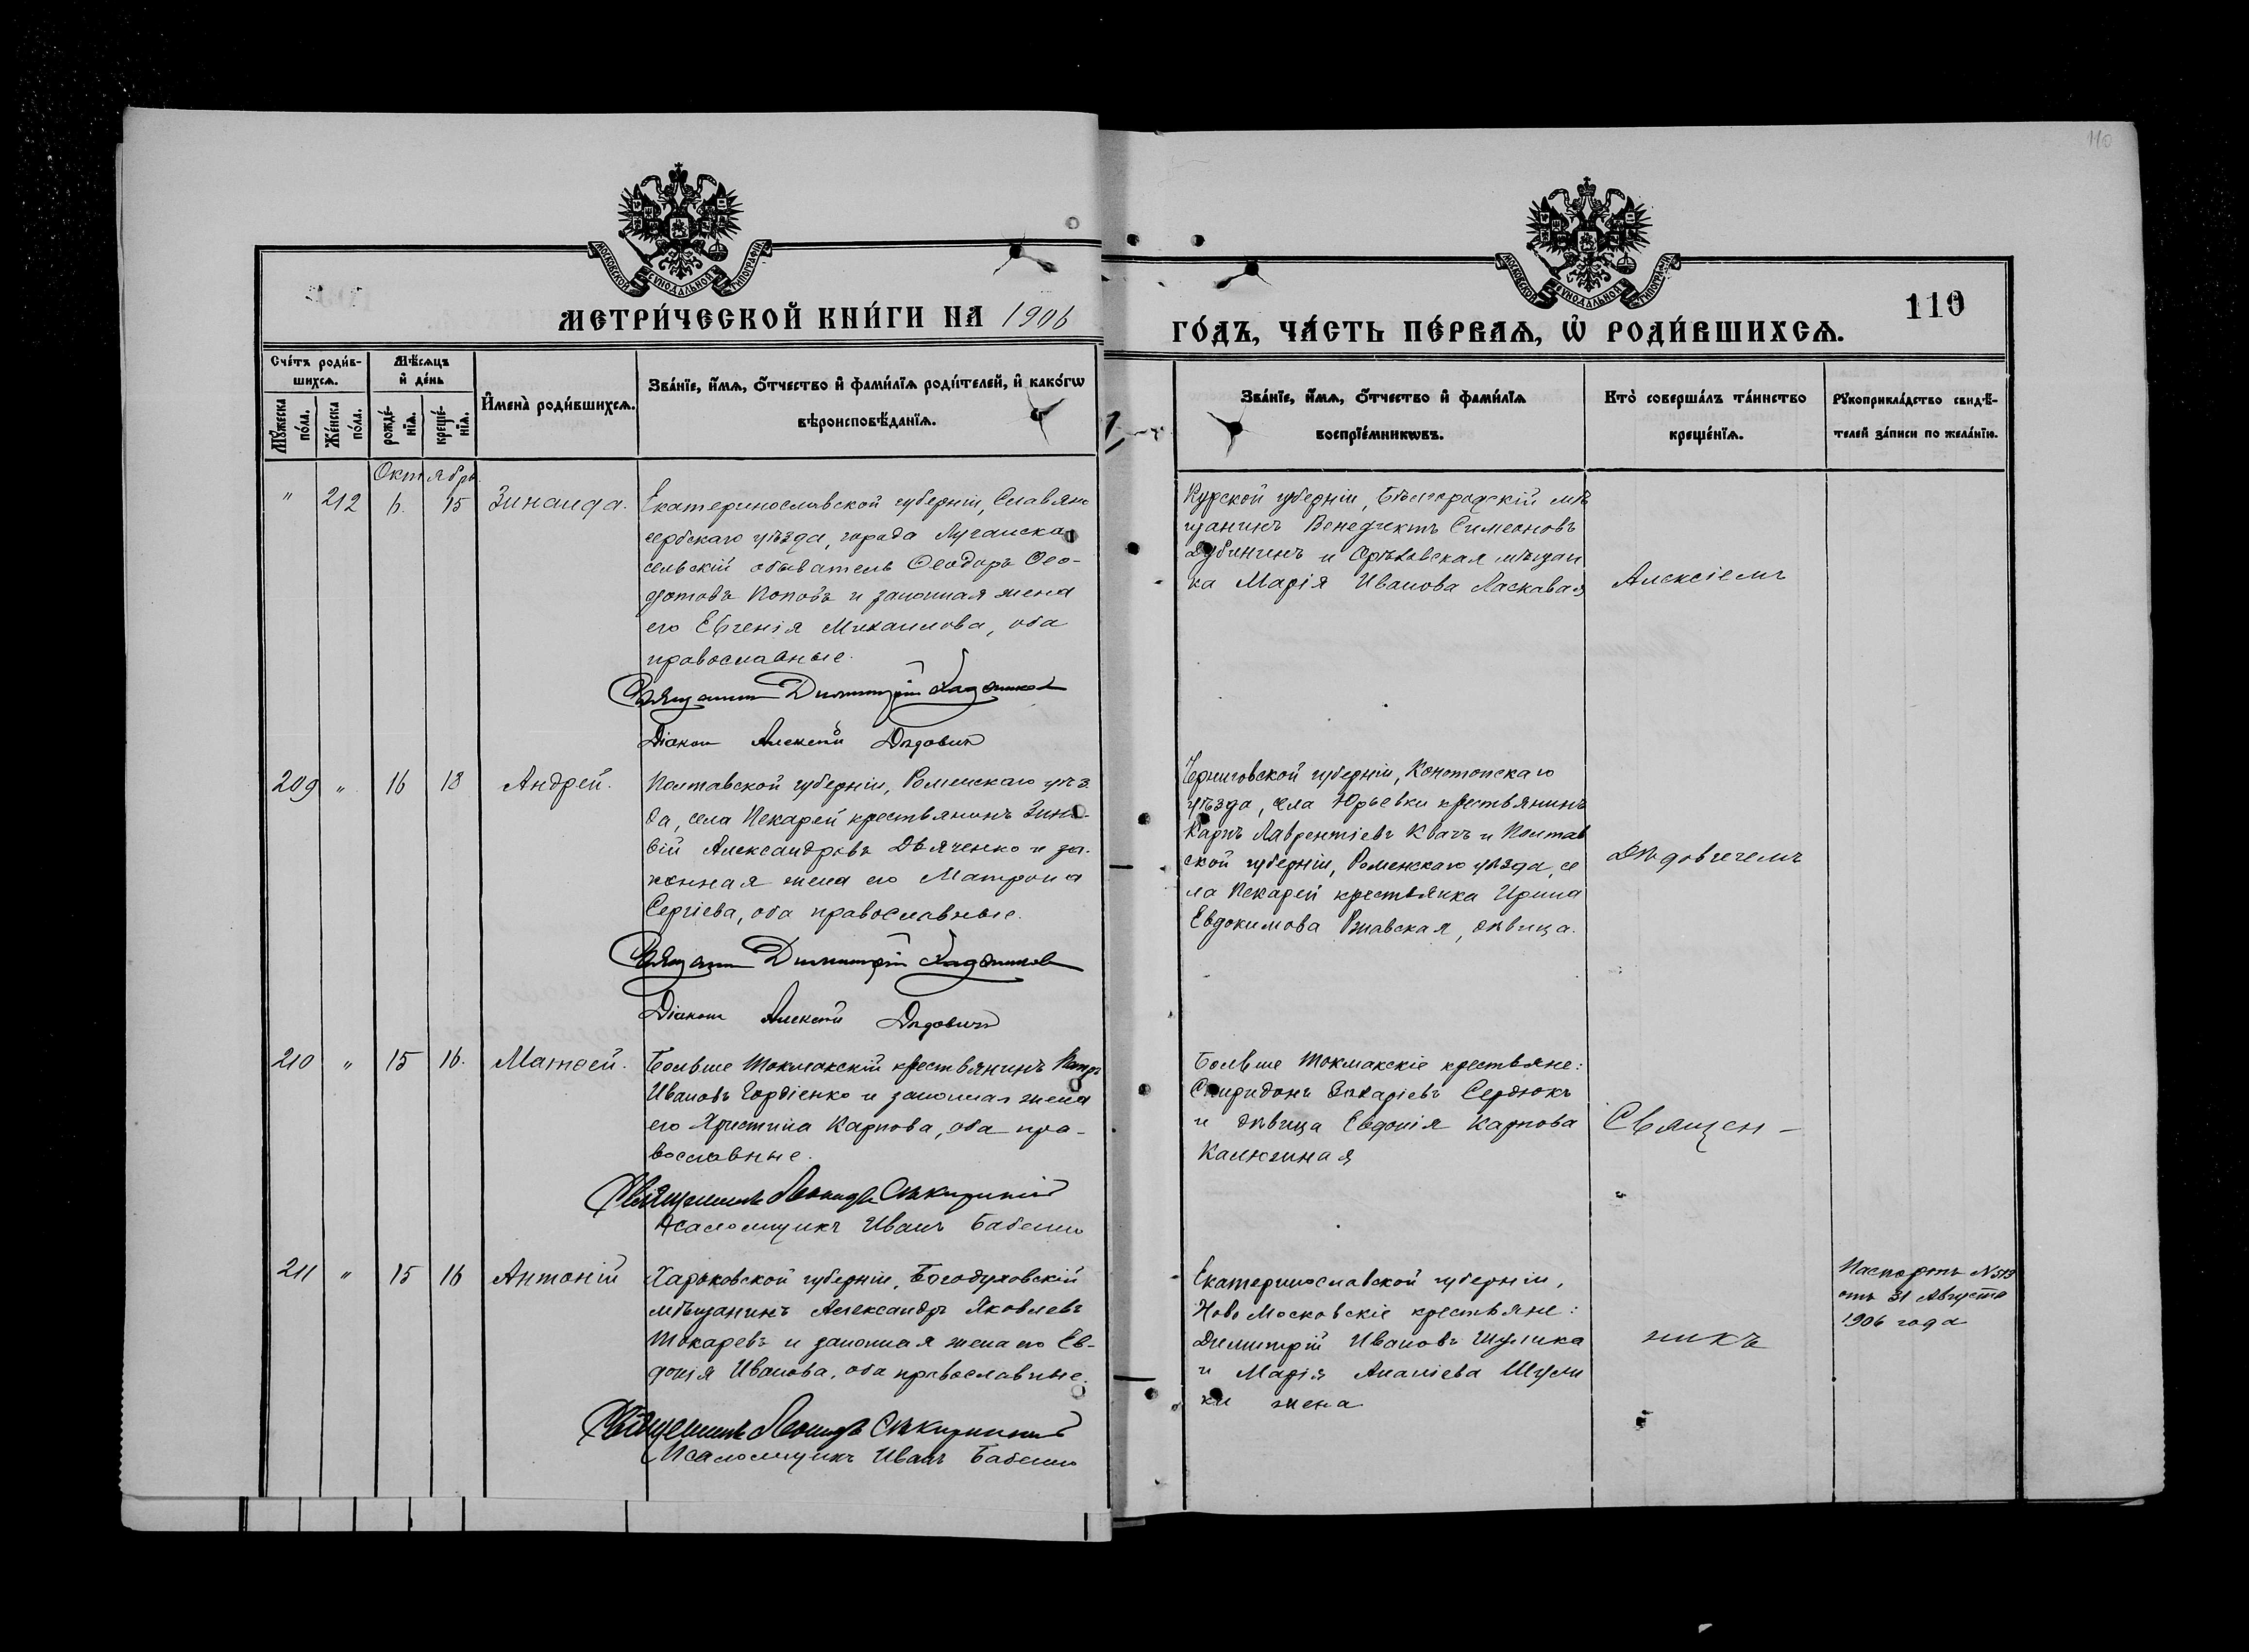 110
МОСКОВСКОЙ СѴНОДАЛЬНОЙ ТИПОГРАФІИ
МОСКОВСКОЙ СѴНОДАЛЬНОЙ ТИПОГРАФІИ
МЕТРИ́ЧЕСКОЙ КНИ́ГИ НА 1906
ГО́ДЪ, ЧА́СТЬ ПЕ́РВАѦ, Ѡ҆ РОДИ́ВШИХСѦ.
110
Сче́тъ роди́в-
шихсѧ.
Мꙋ́жеска
по́ла.
Же́нска
по́ла.
Мѣ́сѧцъ
и҆ де́нь
рожде́-
нїѧ.
креще́-
нїѧ.
И҆мена̀ роди́вшихсѧ.
Зва́нїе, и҆́мѧ, ѻ҆́тчество и҆ фами́лїѧ роди́телей, и҆ како́гѡ
вѣроисповѣ́данїѧ.
Зва́нїе, и҆́мѧ, ѻ҆́тчество и҆ фами́лїѧ
воспрїе́мникѡвъ.
Кто̀ соверша́лъ та́инство
креще́нїѧ.
Рꙋкоприкла́дство свидѣ́-
телей за́писи по жела́нїю.
Октябрь
" 212 15 Зинаида.
Екатеринославской губерніи, Славяно
сербскаго уѣзда, города Луганска
сельскій обыватель Ѳеодоръ Ѳео-
дотовъ Поповъ и законная жена
его Евгенія Михаилова, оба
православные.
Священникъ Димитрій
Діаконъ Алексій Дѣдовичъ
Курской губерніи, Бѣлгородскій мѣ
щанинъ Венедиктъ Симеоновъ
Дубининъ и Орѣховская мѣщан
ка Марія Иванова Ласкавая
Алексіемъ
209 " 16 18 Андрей.
Полтавской губерніи, Роменскаго уѣз
да, села Пекарей крестьянинъ Зино-
вій Александровъ Дьяченко и за-
конная жена его Матрона
Сергіева, оба православные.
Священникъ Димитрій
Діаконъ Алексій Дѣдовичъ
Черниговской губерніи, Конотопскаго
уѣзда, села Юрьевки крестьянинъ
Карпъ Лаврентіевъ Квачъ и Полтав
ской губерніи, Роменскаго уѣзда, се
ла Пекарей крестьянка Ирина
Евдокимова Ржавская, дѣвица.
Дѣдовичемъ
210 " 15 16. Матѳей.
Больше Токмакскій крестьянинъ Петръ
Ивановъ Гордіенко и законная жена
его Христина Карпова, оба пра-
вославные.
Священникъ Леонидъ
Псаломщикъ Иванъ Бабенко
Больше Токмакскіе крестьяне:
Спиридонъ Захаріевъ Сердюкъ
и дѣвица Евдокія Карпова
Калюжная
Священ-
211 " 15 16 Антоній
Харьковской губерніи, Богодуховскій
мѣщанинъ Александръ Яковлевъ
Токаревъ и законная жена его Ев-
докія Иванова, оба православные.
Священникъ Леонидъ
Псаломщикъ Иванъ Бабенко
Екатеринославской губерніи,
Ново Московскіе крестьяне:
Димитрій Ивановъ Шулика
и Марія Ананіева Шули
ки жена
никъ
Паспортъ №
отъ 31 Августа
1906 года